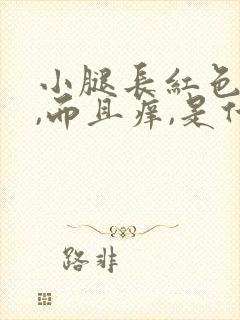 小腿長紅色
,而且痒,是什
路非